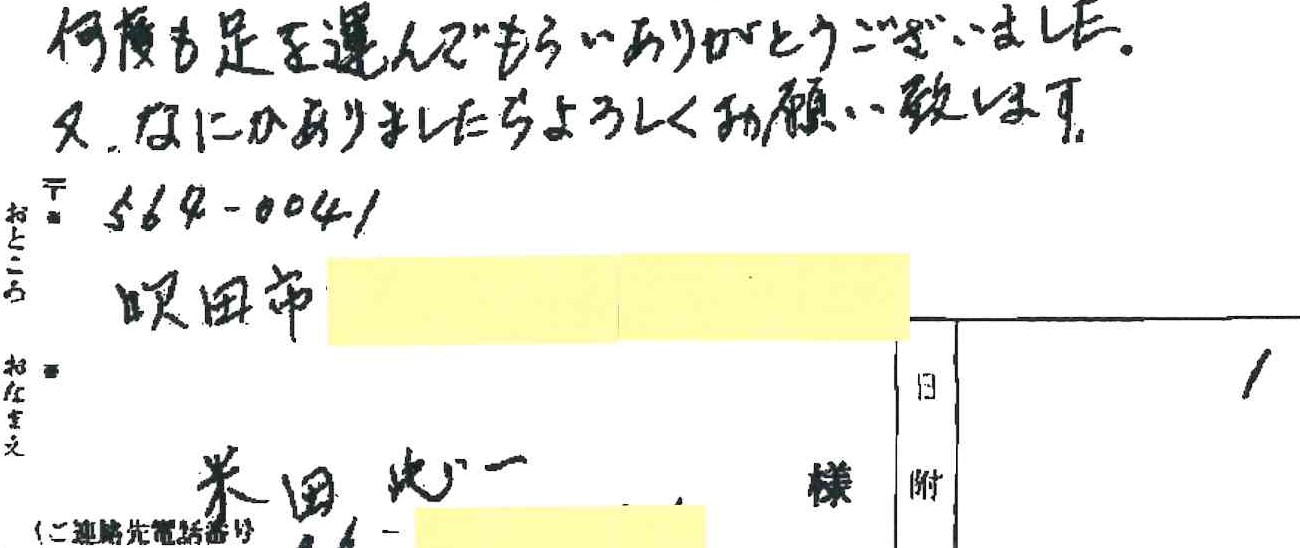 何度も足を運んでもらいありがとうございました。
又、なにかありましたらよろしくお願い致します。
〒 564-0041
おところ
吹田市
おなまえ
米田 一
様
日附
1
(ご連絡先電話番号